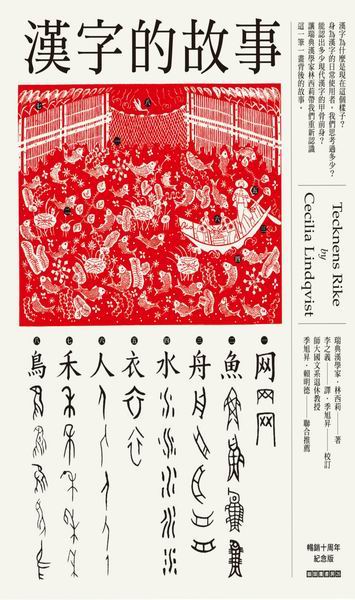 漢字的故事
漢字為什麼是現在這個樣子？
身為漢字的日常使用者，我們思考過多少？
能認出多少現代漢字的甲骨前身？
讓瑞典漢學家林西莉帶我們重新認識
這一筆一畫背後的故事。
Tecknens Rike
by
Cecilia Lindqvist
瑞典漢學家．林西莉——著
李之義——譯．季旭昇——校訂
師大國文系退休教授
季旭昇．賴明德——聯合推薦
一 网
二 魚
三 舟
四 水
五 衣
六 人
七 禾
八 鳥
暢銷十周年
紀念版